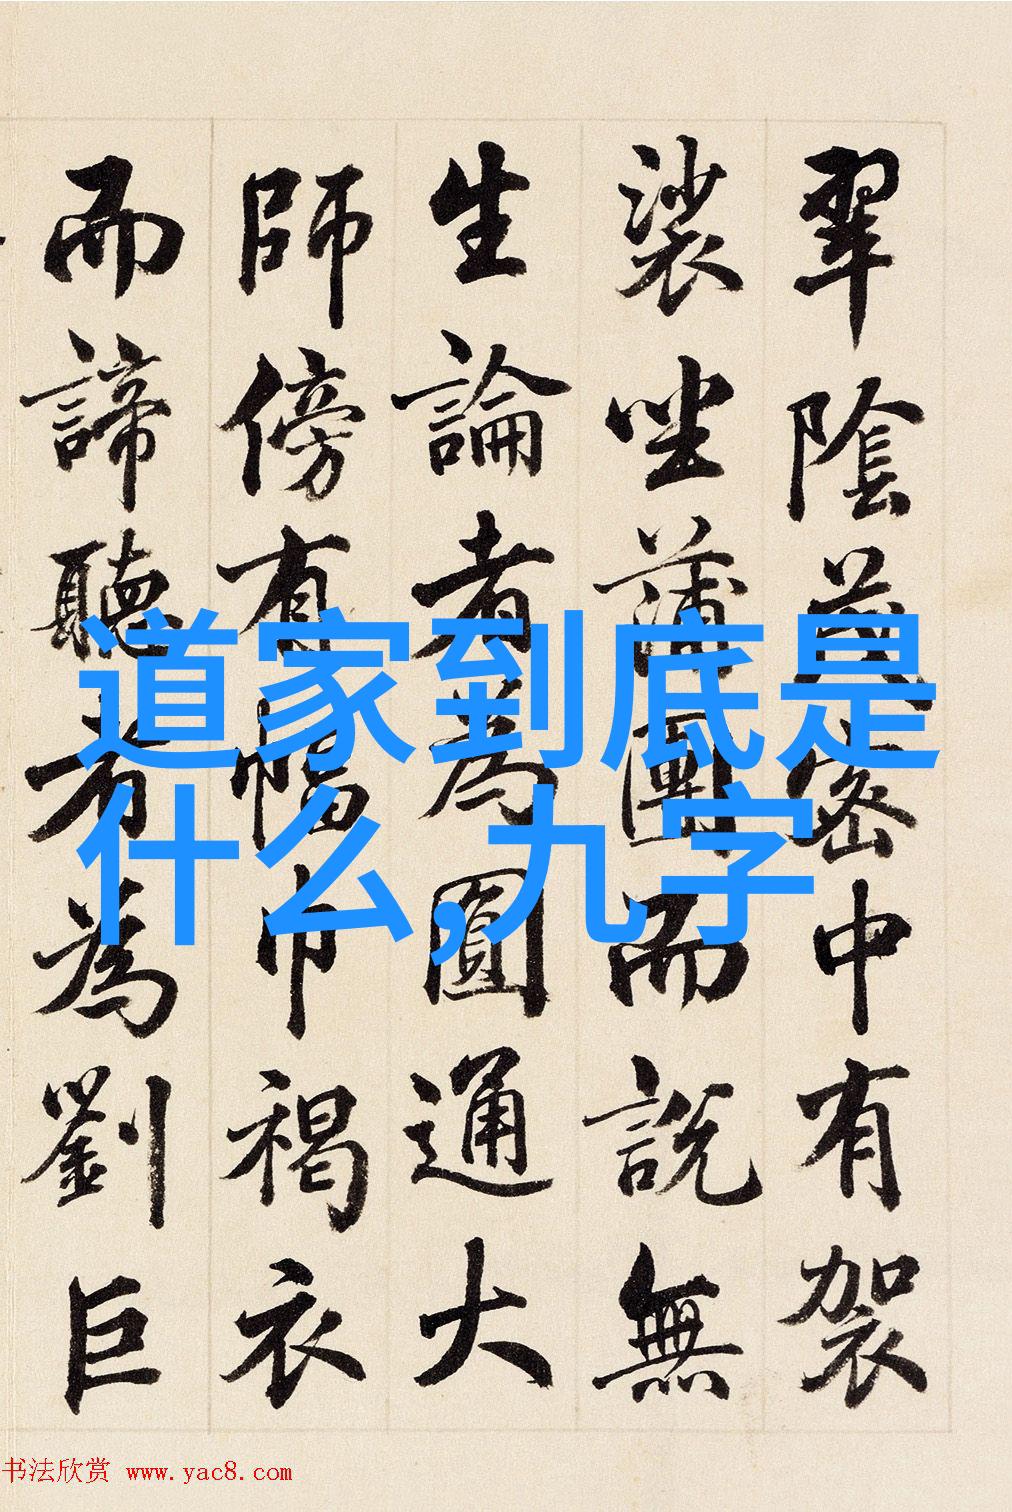 翠陰茂密中有袈
裟坐蒲團而說無
生論者為圓通大
師傍有幅巾褐衣
而諦聽者為劉巨
道家到底是
什么,九字
书法欣赏 www.yac8.com